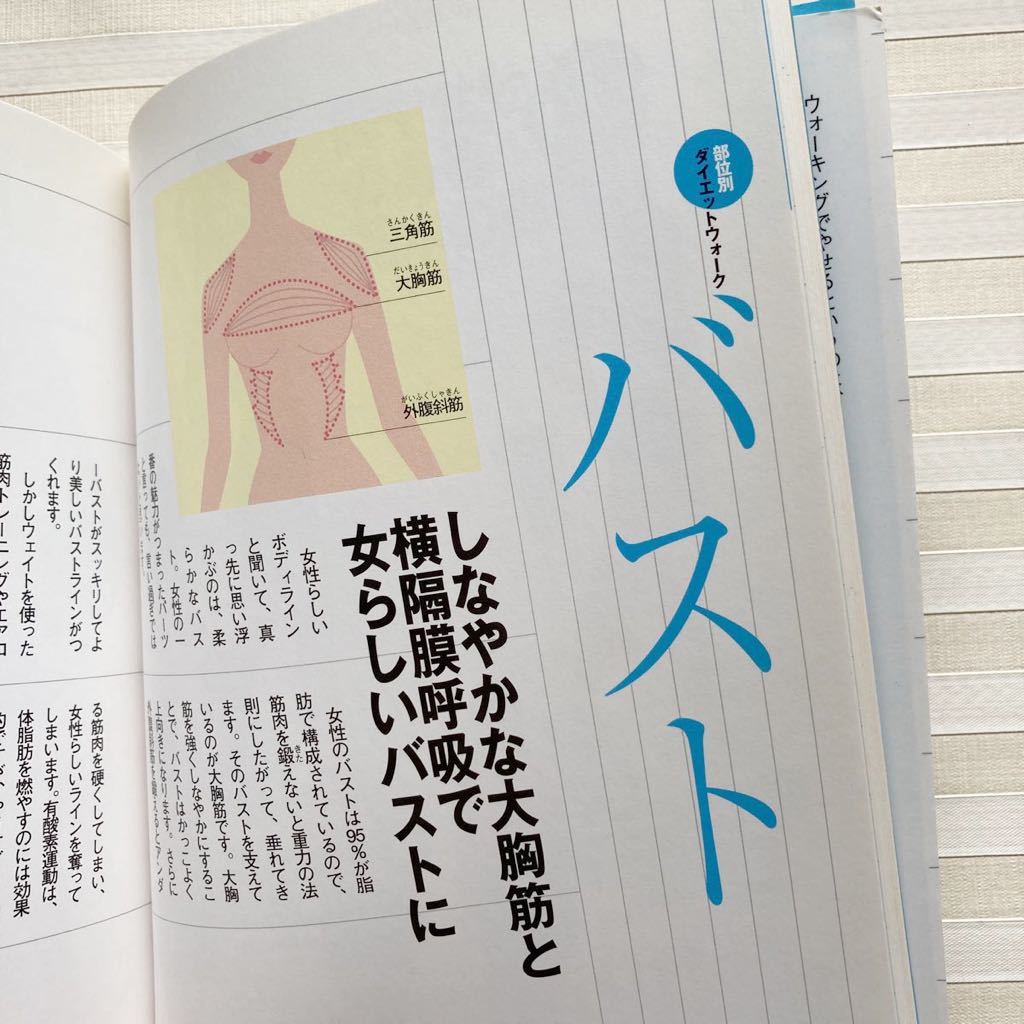 部位別
ダイエットウォーク
バスト
しなやかな大胸筋と
横隔膜呼吸で
女らしいバストに
さんかくきん
三角筋
だいきょうきん
大胸筋
がいふくしゃきん
外腹斜筋
女性らしい
ボディライン
と聞いて、真
っ先に思い浮
かぶのは、柔
らかなバス
ト。女性の一
番の魅力がつまったパーツ
と言っても、言い過ぎでは
女性のバストは95%が脂
肪で構成されているので、
筋肉を鍛えないと重力の法
きた
則にしたがって、垂れてき
ます。そのバストを支えて
いるのが大胸筋です。大胸
筋を強くしなやかにするこ
とで、バストはかっこよく
上向きになります。さらに
外腹斜筋を鍛えるとアンダ
ーバストがスッキリしてよ
り美しいバストラインがつ
くれます。
しかしウェイトを使った
筋肉トレーニングやエアロ
る筋肉を硬くしてしまい、
女性らしいラインを奪って
しまいます。有酸素運動は、
体脂肪を燃やすのには効果
ウォーキングでやせる